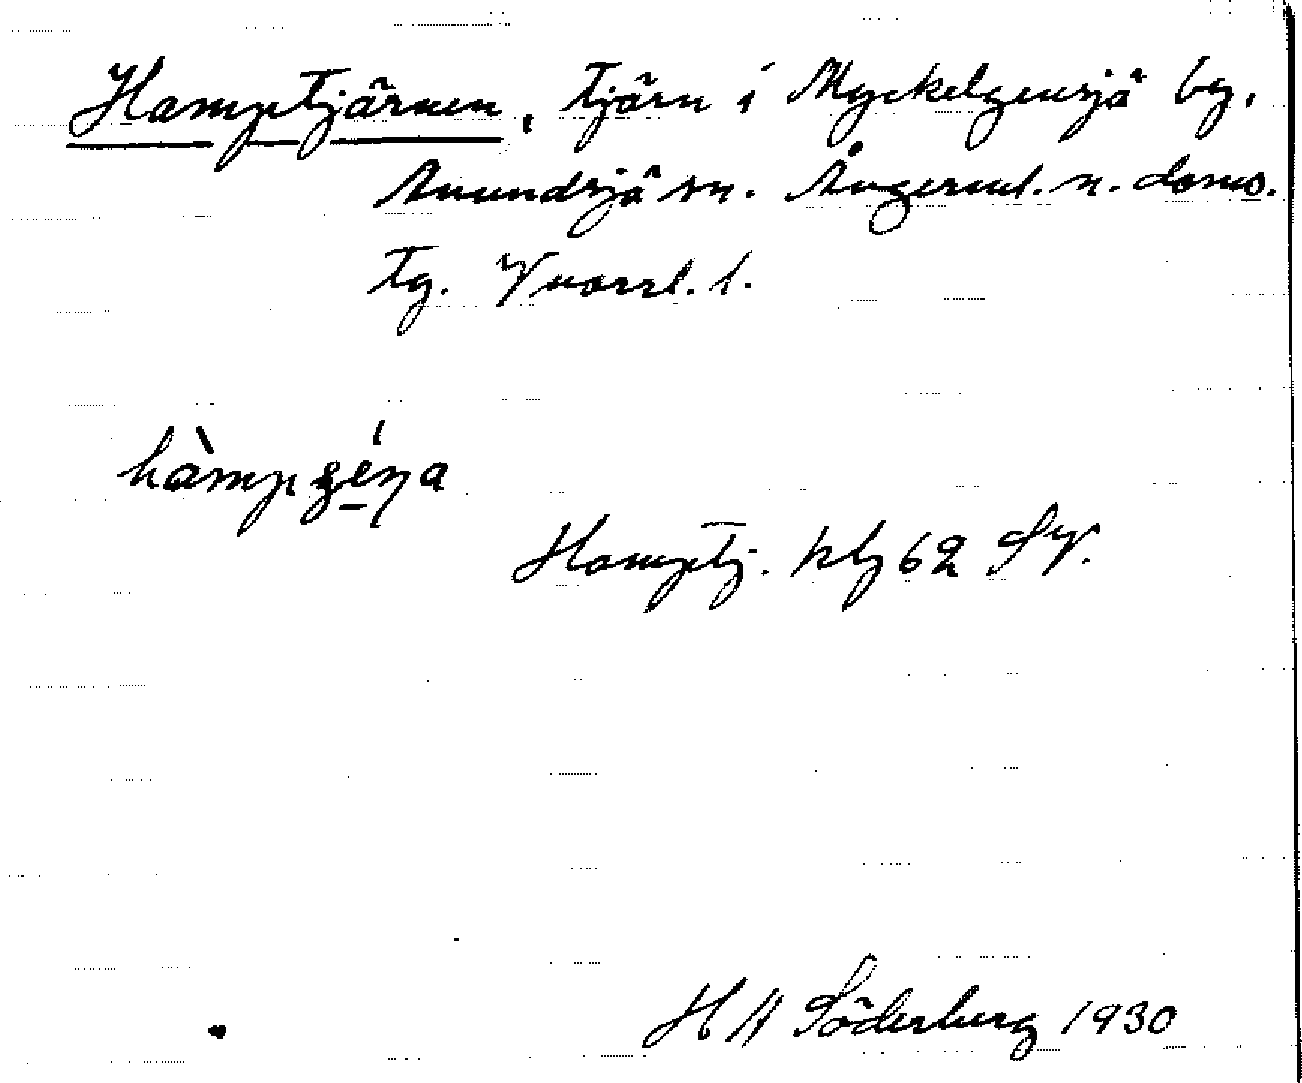 Hamptjärnen, tjärn i Myckelgensjö by.
Anundsjö sn. Ångerml. n. doms.
tg. Vnorrl. l.
Hamptj. kbg 62 Sv.
H H Söderberg 1930